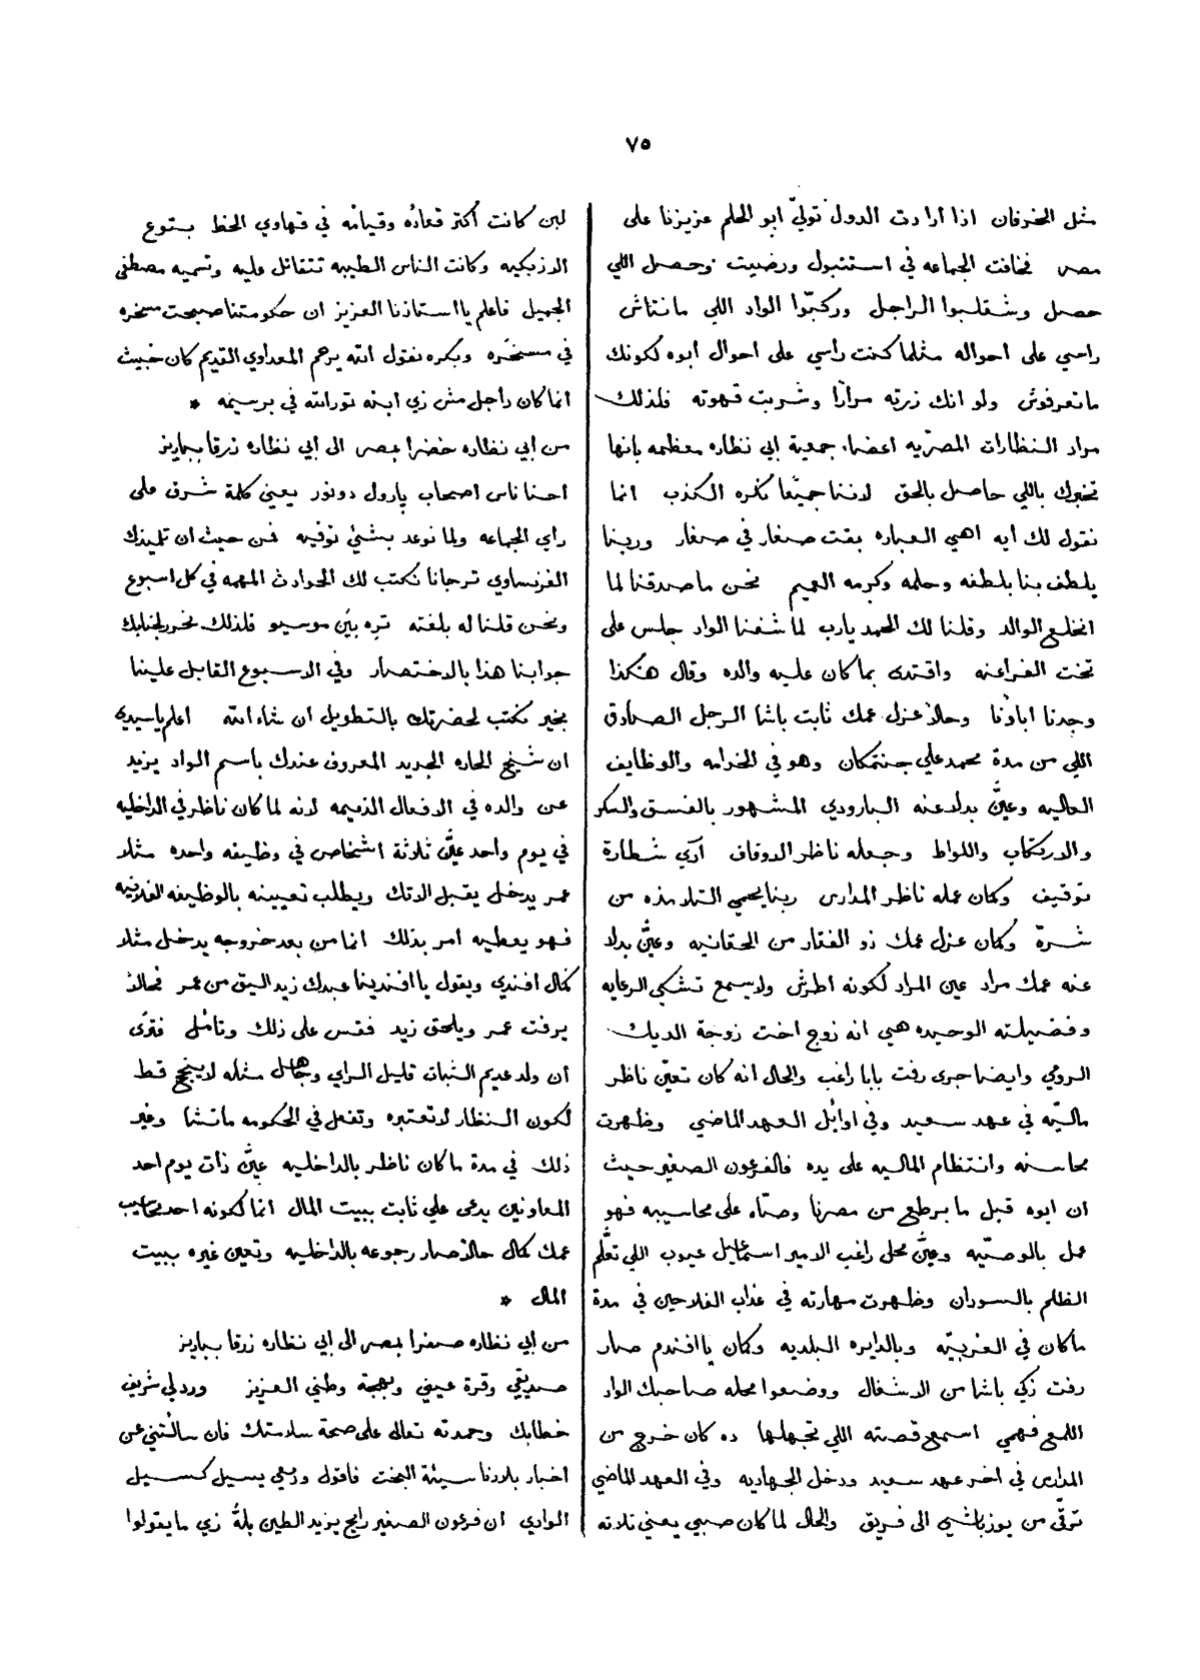 ٧٥
مثل الخرفان اذا ارادت الدول تولّي ابو الحلم عزيزنا على
مصر فخافت الجماعه في استنبول ورضيت وحصل اللي
حصل وشقلبوا الراجل وركبّوا الواد اللي مانتاش
راسي على احواله مثلما كنت راسي على احوال ابوه لكونك
ماتعرفوش ولو انك زرته مرارًا وشربت قهوته فلذلك
مراد النظارات المصريّه اعضاء جمعية ابي نظاره معظمه بانها
تخبرك باللي حاصل بالحق لاننا جميعًا نكره الكذب انما
نقول لك ايه اهي العباره بقت صغار في صغار وربنا
يلطف بنا بلطفه وحلمه وكرمه العميم نحن ما صدقنا لما
انخلع الوالد وقلنا لك الحمد يارب لما شفنا الواد جلس على
تخت الفراعنه واقتدى بما كان عليه والده وقال هكذا
وجدنا اباؤنا وحالا عزل عمك ثابت باشا الرجل الصادق
اللي من مدة محمد علي جنتمكان وهو في الخدامه والوظايف
العاليه وعيّن بدلا عنه البارودي المشهور بالفسق والسكر
والارتكاب واللواط وجعله ناظر الاوقاف آدي شطارة
توفيق وكمان عمله ناظر المدارس ربنا يحمي التلامذه من
شرّه وكمان عزل عمك ذو الفقار من الحقانيه وعيّن بدلا
عنه عمك مراد عين المراد لكونه اطرش ولا يسمع تشكي الرعايه
وفضيلته الوحيده هي انه زوج اخت زوجة الديك
الرومي وايضا جرى رفت بابا راغب والحال انه كان تعيّن ناظر
ماليّه في عهد سعيد وفي اوائل العهد الماضي وظهرت
محاسنه وانتظام الماليه على يده فالفرعون الصغير حيث
ان ابوه قبل ما برطع من مصرنا وصّاه على محاسيبه فهو
عمل بالوصيّه وعيّن محل راغب الامير اسماعيل عيوب اللي تعلّم
الظلم بالسودان وظهرت مهارته في عذاب الفلاحين في مدة
ما كان في الغربيّه وبالدايره البلديه وكمان يا افندم صار
رفت زكي باشا من الاشغال ووضعوا محله صاحبك الواد
اللمع فهمي اسمع قصته اللي تجهلها ده كان خرج من
المدارس في اخر عهد سعيد ودخل الجهاديه وفي العهد الماضي
ترقّى من يوزباشي الى فريق والحال لما كان صبي يعني تلاته
لبن كانت أكتر قعاده وقيامه في قهاوي الحظ بتوع
الازبكيه وكانت الناس الطيبه تتقاتل عليه وتسميه مصطفى
الجميل فاعلم يا استاذنا العزيز ان حكومتنا صبحت مسخره
في مسخره وبكره نقول الله يرحم المعداوي القديم كان خبيث
انما كان راجل مش زي ابنه تورالله في برسيمه *
من ابي نظاره خضرا بمصر الى ابي نظاره زرقا بباريز
احنا ناس اصحاب پارول دونور يعني كلمة شرف على
راي الجماعه ولما نوعد بشئي نوفيه فمن حيث ان تلميذك
الفرنساوي ترجانا نكتب لك الحوادث المهمه في كل اسبوع
ونحن قلنا له بلغته تره بيَن موسيو فلذلك نحرر لجنابك
جوابنا هذا بالاختصار وفي الاسبوع القابل علينا
بخير نكتب لحضرتك بالتطويل ان شاء الله اعلم ياسيدي
ان شيخ الحاره الجديد المعروف عندك باسم الواد يزيد
عن والده في الافعال الذميمه لانه لما كان ناظر في الداخليه
في يوم واحد عيّن ثلاثة اشخاص في وظيفه واحده مثلا
عمر يدخل يقبل الاتك ويطلب تعيينه بالوظيفه الفلانيه
فهو يعطيه امر بذلك انما من بعد خروجه يدخل مثلا
كمال افندي ويقول يا افندينا عبدك زيد اليق من عمر فحالا
يرفت عمر ويلحق زيد فقس على ذلك وتأمل فترى
أن ولد عديم الثبات قليل الراي وجاهل مثله لا ينجح قط
لكون النظار لا تعتبره وتفعل في الحكومه ماتشا وغير
ذلك في مدة ما كان ناظر بالداخليه عيّن ذات يوم احد
المعاونين يدعى علي ثابت ببيت المال انما لكونه احد محاسيب
عمك كمال حالا صار رجوعه بالداخليه وتعين غيره ببيت
المال *
من ابي نظاره صفرا بمصر الى ابي نظاره زرقا بباريز
صديقي وقرة عيني وبهجة وطني العزيز ورد لي شريف
خطابك وحمدته تعالى على صحة سلامتك فان سالتني عن
اخبار بلادنا سيئة البخت فاقول ودمعي يسيل كسيل
الوادي ان فرعون الصغير رايح يزيد الطين بلّة زي ما يقولوا